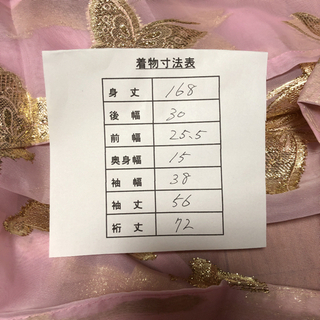 着物寸法表
身丈 168
後幅 30
前幅 25.5
奥身幅 15
袖幅 38
袖丈 56
裄丈 72